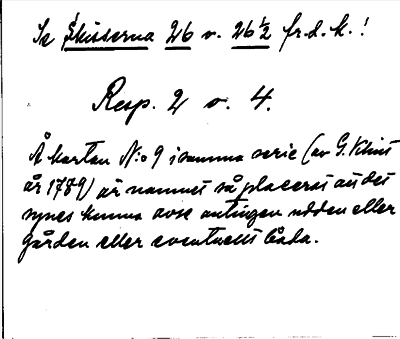 Se Skisserna 26 o. 26½ fr.d.k.!
Resp. 2 o. 4.
Å kartan N:o 9 i samma serie (av G. Klint
år 1789) är namnet så placerat att det
synes kunna avse antingen udden eller
gården eller eventuellt båda.